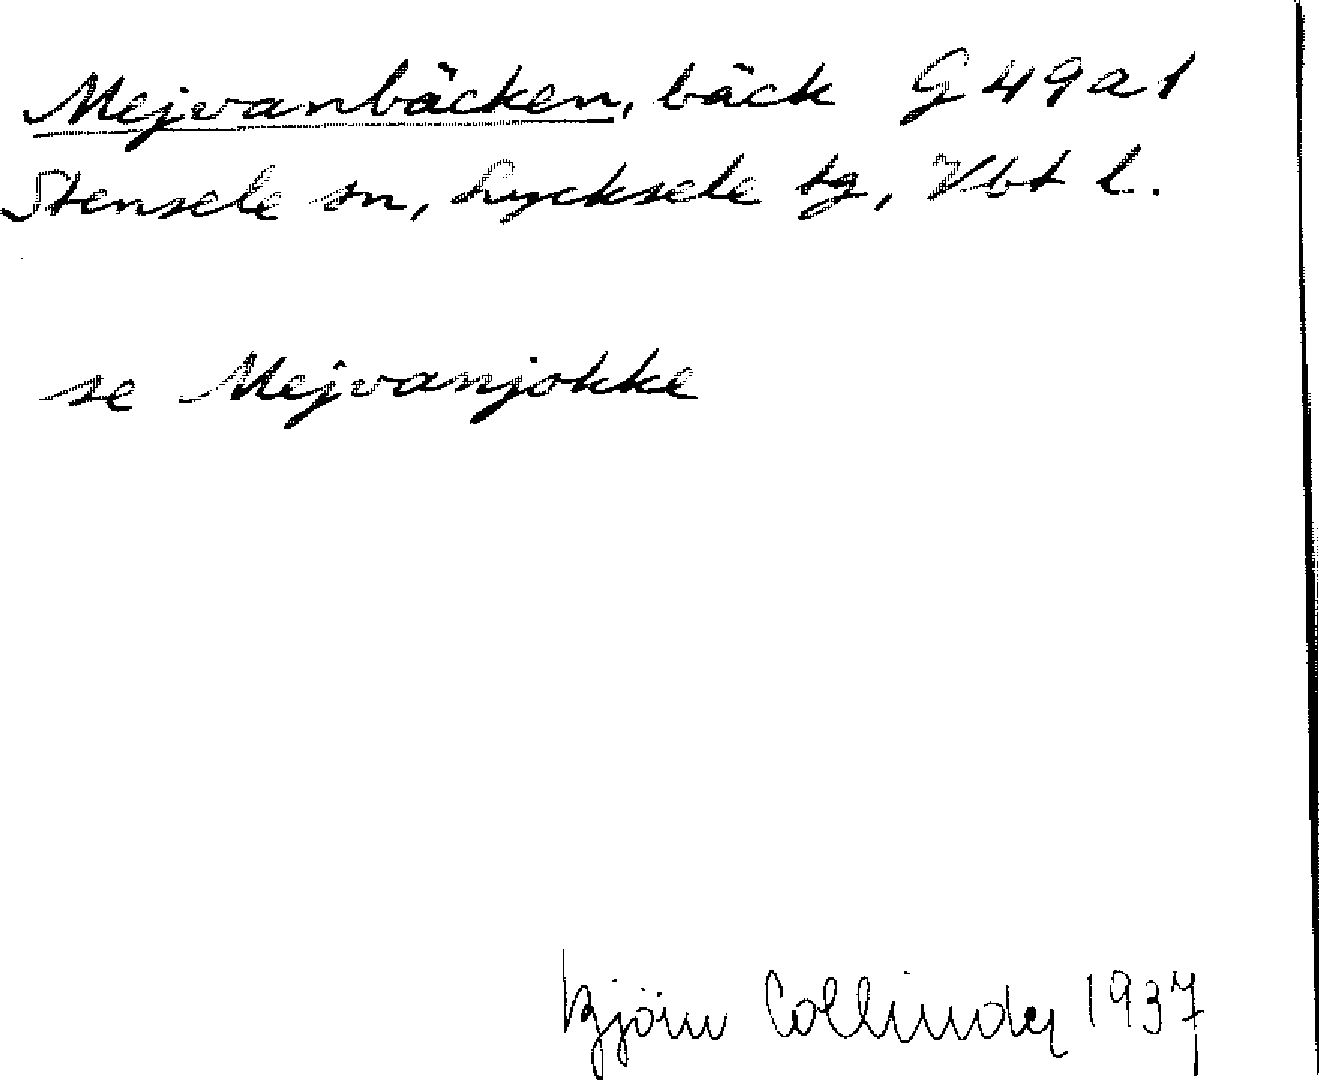 Mejvanbäcken, bäck G 49a1
Stensele sn, Lycksele tg, Vbt l.
se Mejvanjokke
Björn Collinder 1937